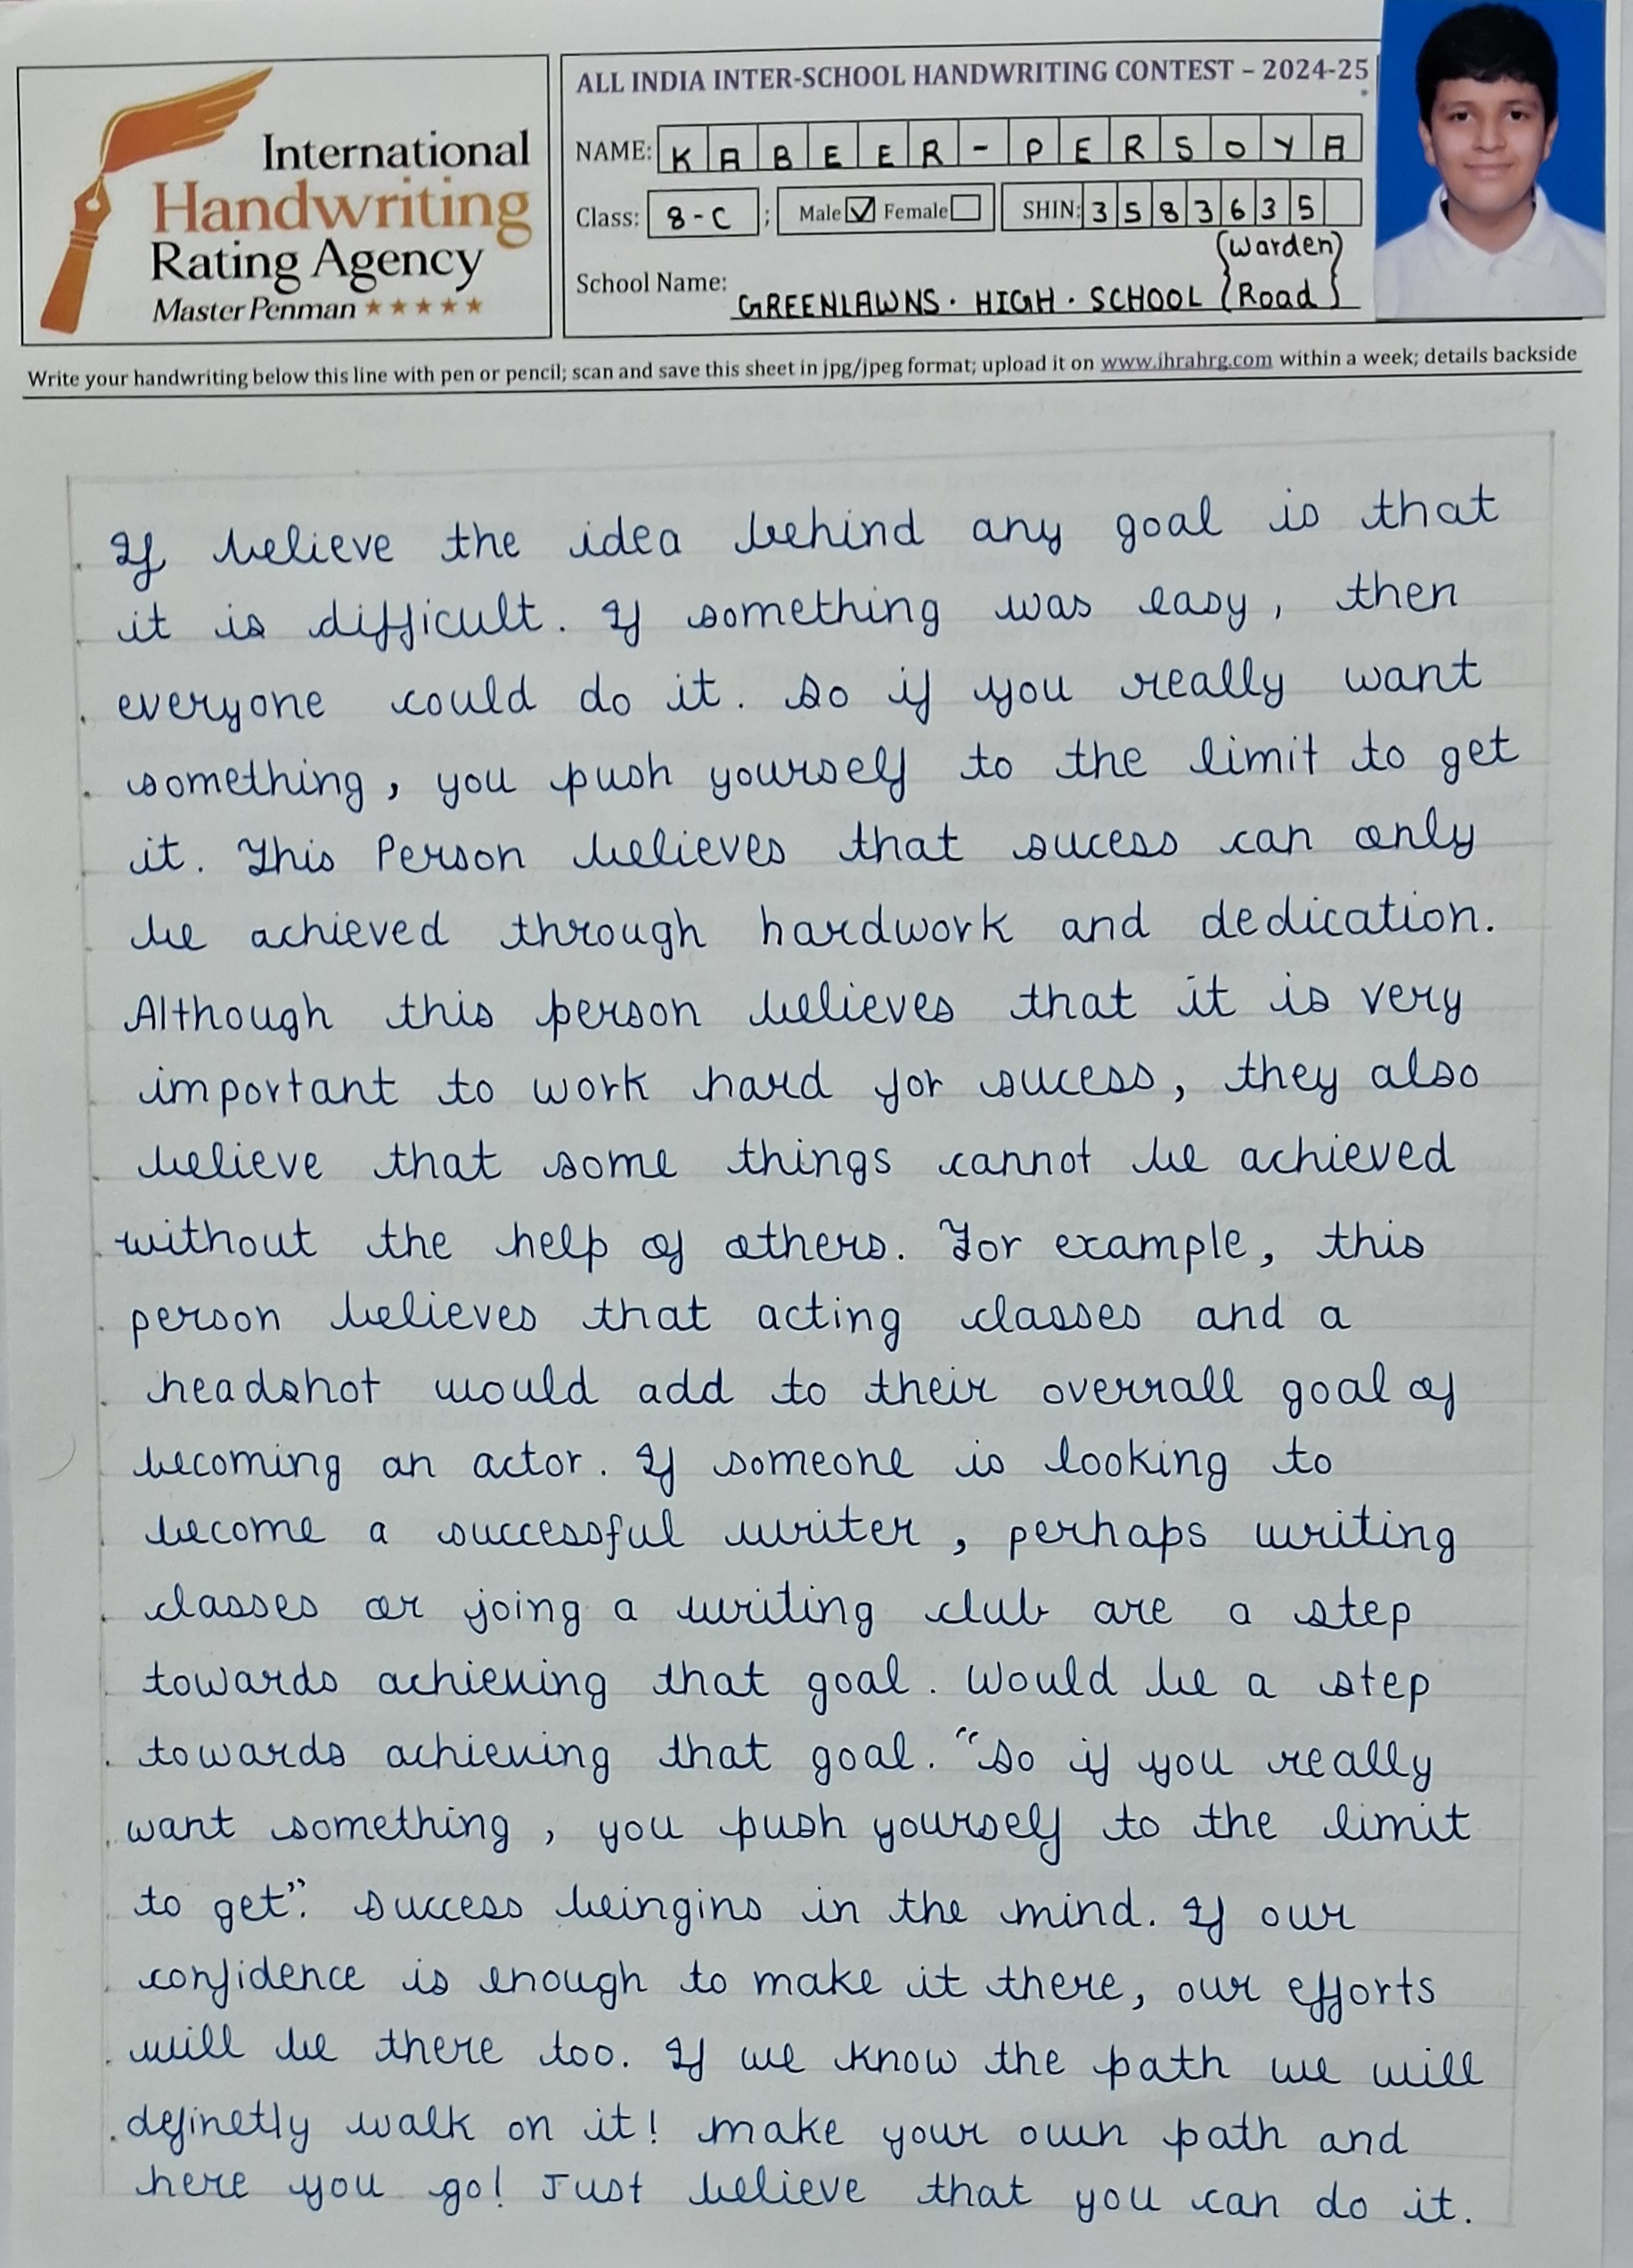 International
Handwriting
Rating Agency
Master Penman ★★★★★
ALL INDIA INTER-SCHOOL HANDWRITING CONTEST – 2024-25
NAME: KABEER-PERSOYA
Class: 8-C ; Male ☑ Female ☐ SHIN: 3583635
School Name: GREENLAWNS · HIGH · SCHOOL {Warden Road}
Write your handwriting below this line with pen or pencil; scan and save this sheet in jpg/jpeg format; upload it on www.ihrahrg.com within a week; details backside
If believe the idea behind any goal is that
it is difficult. If something was easy, then
everyone could do it. So if you really want
something, you push yourself to the limit to get
it. This Person believes that sucess can only
be achieved through hardwork and dedication.
Although this person believes that it is very
important to work hard for sucess, they also
believe that some things cannot be achieved
without the help of others. For example, this
person believes that acting classes and a
headshot would add to their overrall goal of
becoming an actor. If someone is looking to
become a successful writer, perhaps writing
classes or joing a writing club are a step
towards achieving that goal. Would be a step
towards achieving that goal. "So if you really
want something, you push yourself to the limit
to get". Success beingins in the mind. If our
confidence is enough to make it there, our efforts
will be there too. If we know the path we will
definetly walk on it! make your own path and
here you go! Just believe that you can do it.